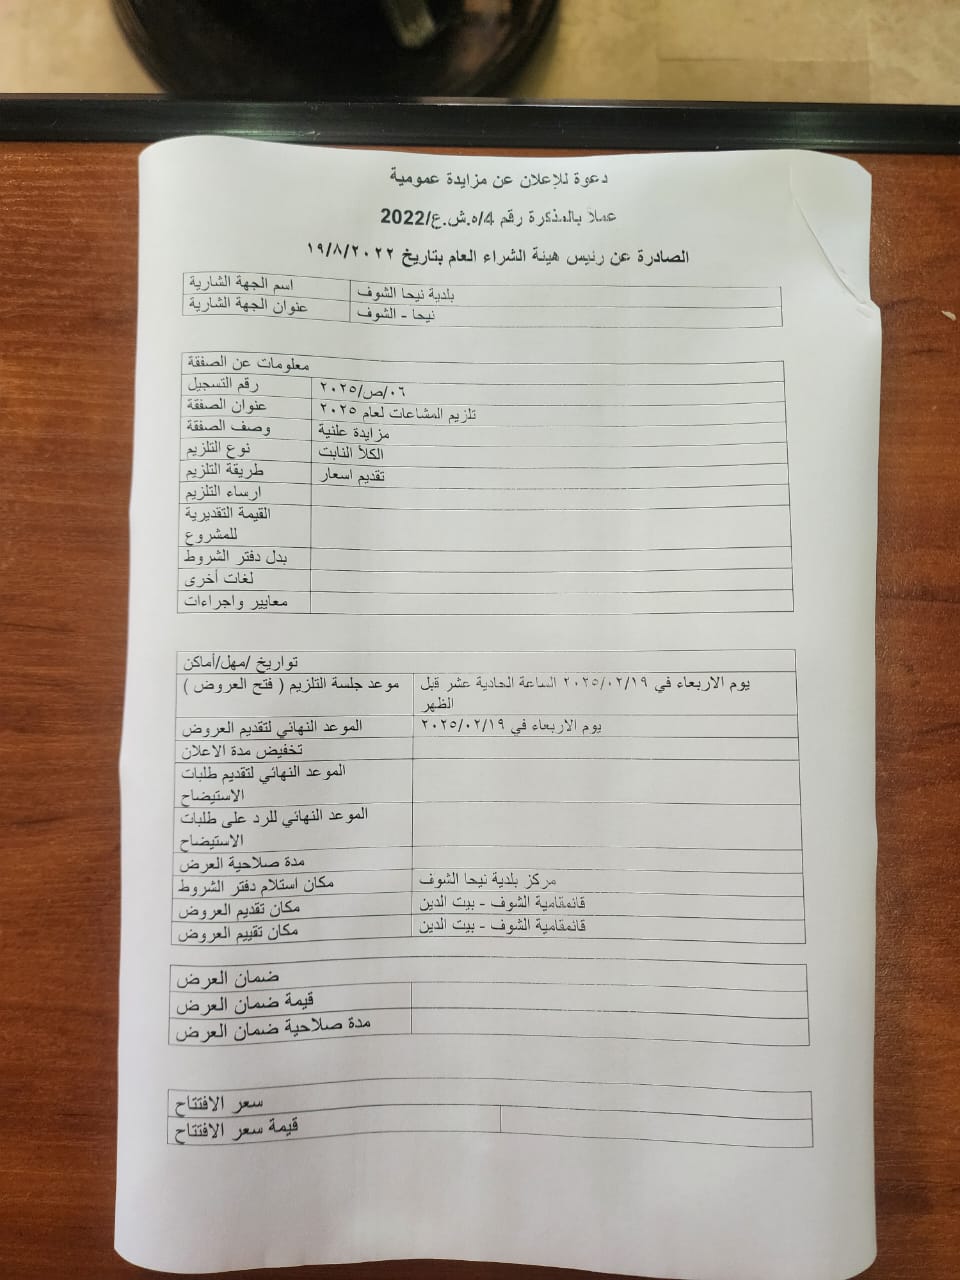 دعوة للإعلان عن مزايدة عمومية
عملا بالمذكرة رقم 4/ه.ش.ع/2022
الصادرة عن رئيس هيئة الشراء العام بتاريخ ١٩/٨/٢٠٢٢
اسم الجهة الشارية بلدية نيحا الشوف
عنوان الجهة الشارية نيحا - الشوف
معلومات عن الصفقة
رقم التسجيل ٠٦/ص/٢٠٢٥
عنوان الصفقة تلزيم المشاعات لعام ٢٠٢٥
وصف الصفقة مزايدة علنية
نوع التلزيم الكلأ النابت
طريقة التلزيم تقديم اسعار
ارساء التلزيم
القيمة التقديرية
للمشروع
بدل دفتر الشروط
لغات أخرى
معايير واجراءات
تواريخ /مهل/أماكن
موعد جلسة التلزيم ( فتح العروض ) يوم الاربعاء في ٢٠٢٥/٠٢/١٩ الساعة الحادية عشر قبل
الظهر
الموعد النهائي لتقديم العروض يوم الاربعاء في ٢٠٢٥/٠٢/١٩
تخفيض مدة الاعلان
الموعد النهائي لتقديم طلبات
الاستيضاح
الموعد النهائي للرد على طلبات
الاستيضاح
مدة صلاحية العرض
مكان استلام دفتر الشروط مركز بلدية نيحا الشوف
مكان تقديم العروض قائمقامية الشوف - بيت الدين
مكان تقييم العروض قائمقامية الشوف - بيت الدين
ضمان العرض
قيمة ضمان العرض
مدة صلاحية ضمان العرض
سعر الافتتاح
قيمة سعر الافتتاح